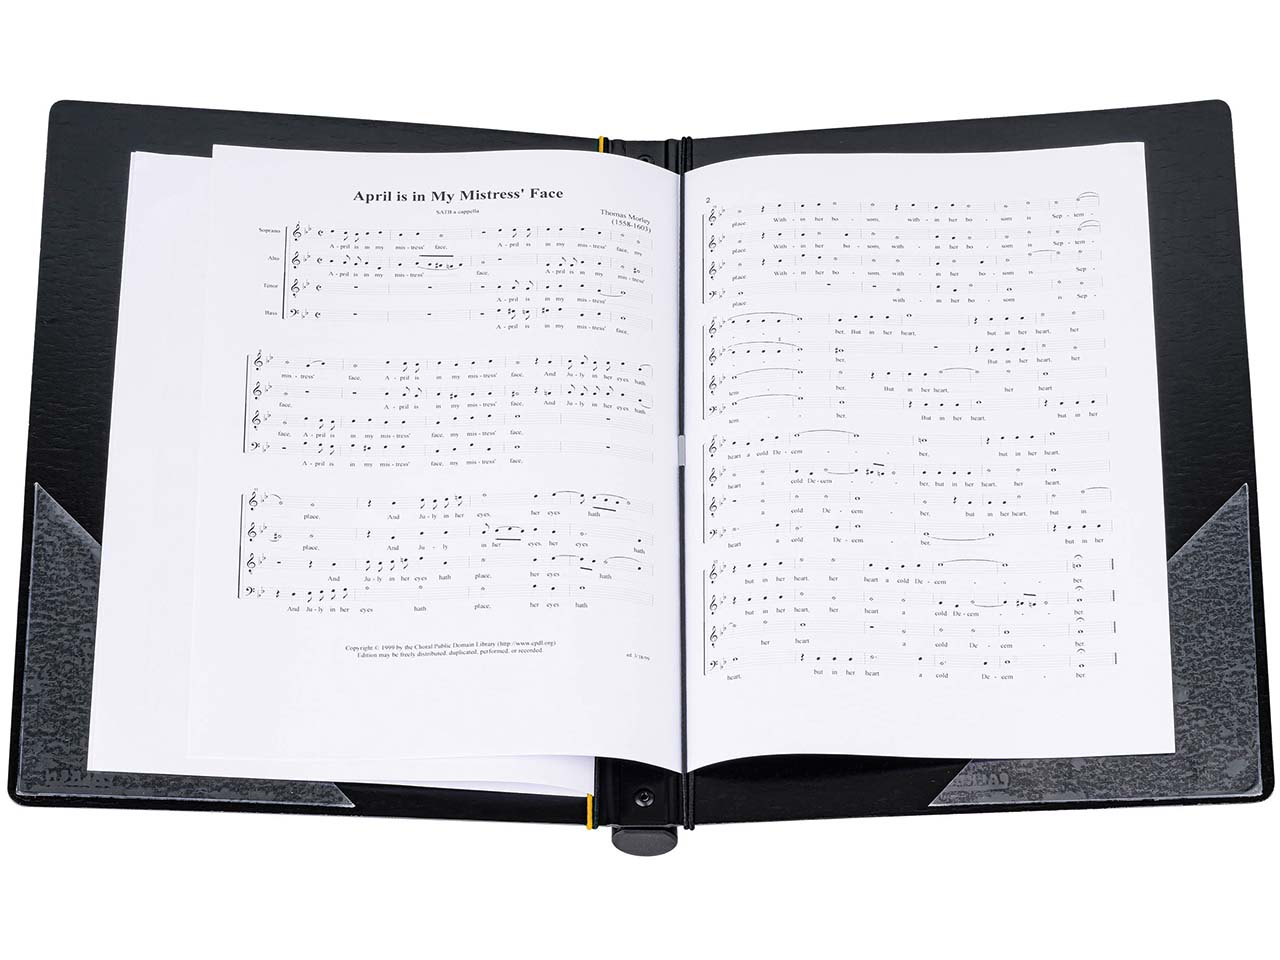 April is in My Mistress' Face
SATB a cappella
Thomas Morley
(1558-1603)
Soprano
A - pril is in my mis - tress' face, A - pril is in my mis - tress' face, my
Alto
A - pril is in my mis - tress' face, A - pril is in my mis -
Tenor
A - pril is in my mis - tress'
Bass
A - pril is in my mis - tress' face,
mis - tress' face, A - pril is in my mis - tress' face, And Ju - ly in her eyes hath
face, A - pril is in my mis - tress' face, And Ju - ly in her eyes hath
face, A - pril is in my mis - tress' face, my mis - tress' face,
A - pril is in my mis - tress' face, my mis - tress' face,
place. And Ju - ly in her eyes, her eyes hath
place, And Ju - ly in her eyes, her eyes hath
And Ju - ly in her eyes hath place, her eyes hath
And Ju - ly in her eyes hath place, her eyes hath
Copyright © 1999 by the Choral Public Domain Library (http://www.cpdl.org)
Edition may be freely distributed, duplicated, performed, or recorded.
ed. 3/18/99
2
place. With - in her bo - som, with - in her bo - som is Sep - tem -
place. With - in her bo - som, with - in her bo - som is Sep - tem -
place. With - in her bo - som, with - in her bo - som is Sep -
place. with - in her bo - som is Sep -
- - - ber, But in her heart, but in her heart, her
- - - ber, But in her heart,
tem - - - ber, But in her heart, but in her heart
tem - - - ber, But in her heart, but in her
heart a cold De - cem - - ber, but in her heart,
heart a cold De - cem - - ber, but in her heart, her heart,
a cold De - cem - - ber, but in her heart, but in
heart a cold De - cem - - ber, but in her
but in her heart, her heart a cold De - cem - - - ber.
but in her heart, her heart a cold De - cem - - ber.
her heart a cold De - cem - ber.
heart, but in her heart a cold De - cem - ber.